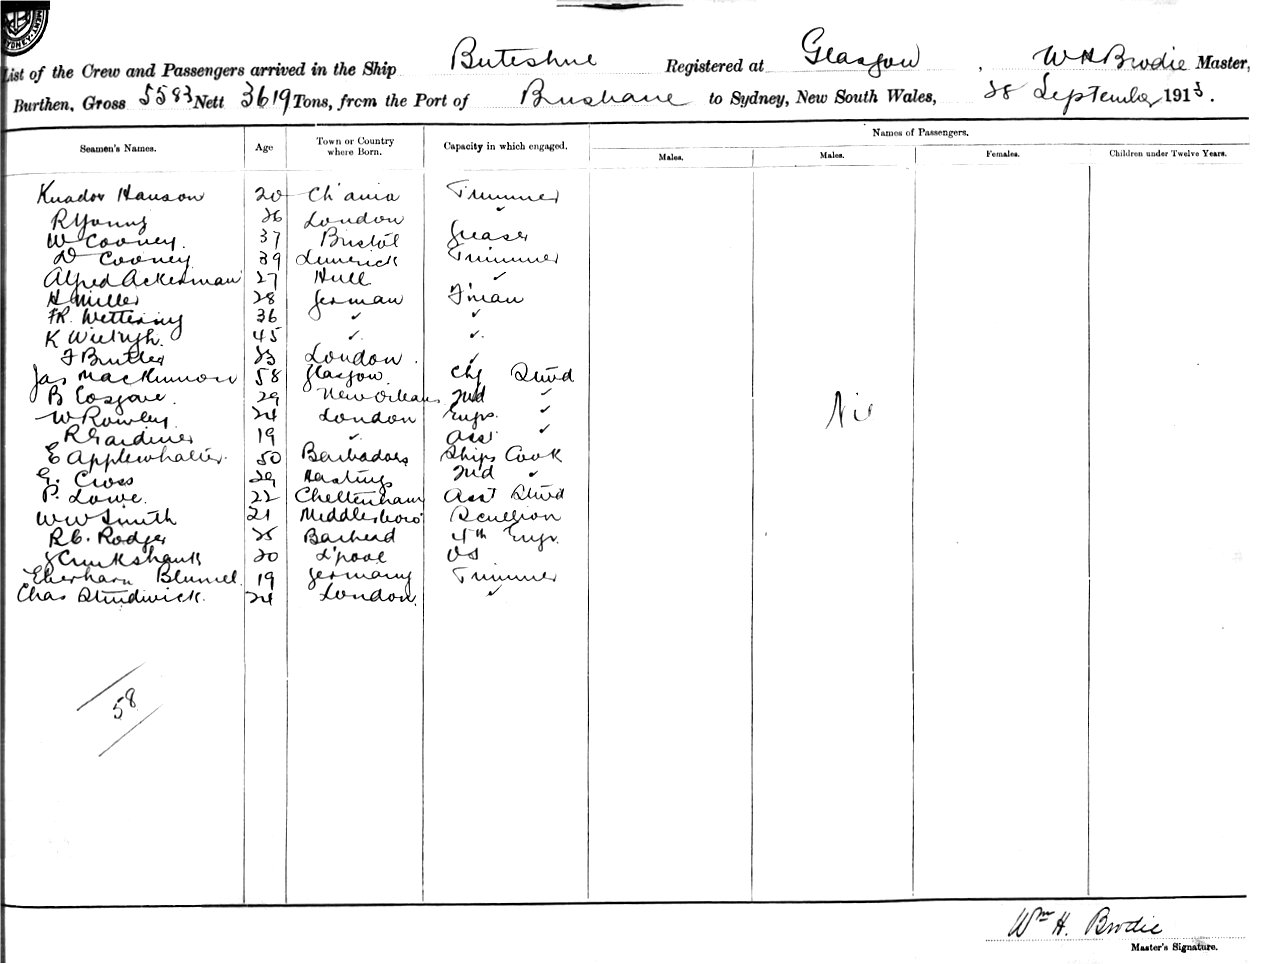 List of the Crew and Passengers arrived in the Ship Buteshire Registered at Glasgow, W H Brodie Master,
Burthen, Gross 5583 Nett 3619 Tons, from the Port of Brisbane to Sydney, New South Wales, 28 September 1913.
Names of Passengers.
Seamen's Names. Age Town or Country where Born. Capacity in which engaged. Males. Males. Females. Children under Twelve Years.
Knador Hanson 20 Ch'ania Trimmer
R Young 26 London ✓
W Cooney. 37 Bristol Greaser
D Cooney 39 Limerick Trimmer
Alfred Ackerman 27 Hull ✓
H Miller 28 German F'man
FR. 36 ✓ ✓
K 45 ✓ ✓
F Butler 23 London. ✓
Jas MacKinnon 58 Glasgow Chf Stwd
B Cosgrove. 29 New Orleans 2nd ✓
W Rowley 24 London Engrs. ✓
R Gardiner 19 ✓ Asst ✓
E Applewhaite. 50 Barbadoes Ships Cook
G. Cross 29 Hastings 2nd ✓
P. Lowe. 22 Cheltenham Asst Stwd
W W Smith 21 Middlesboro' Scullion
R C. Rodger 25 Barhead 4th Engr.
J Cruikshank 20 L'pool OS
Eberharn Blumel 19 Germany Trimmer
Chas Studwick. 24 London ✓
Nil
58
Wm H. Brodie
Master's Signature.